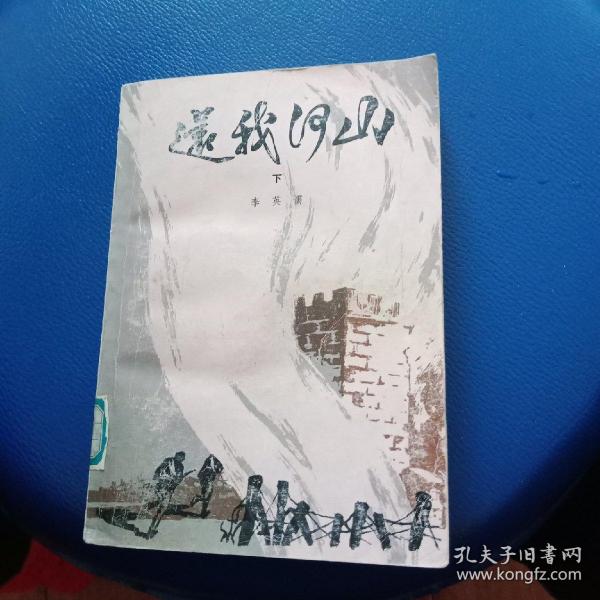 還我河山
下
李英儒
孔夫子旧书网
www.kongfz.com